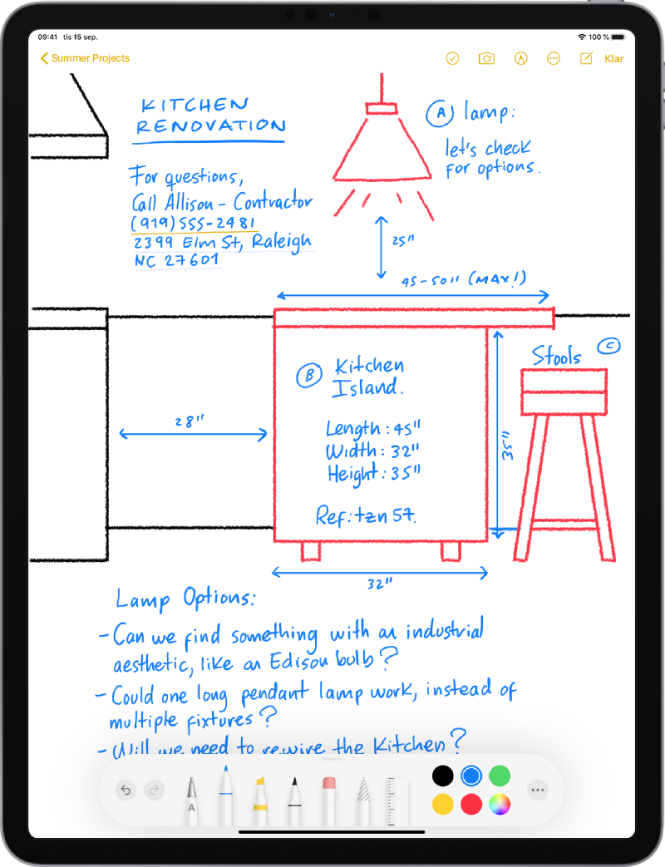 09:41 tis 15 sep.
100 %
Summer Projects
Klar
KITCHEN
RENOVATION
A lamp:
let's check
for options.
For questions,
Call Allison - Contractor
(919) 555-2481
2399 Elm St, Raleigh
NC 27601
25"
45-50" (MAX!)
Stools C
B Kitchen
Island.
28"
Length: 45"
Width: 32"
Height: 35"
35"
Ref: tzn 57.
32"
Lamp Options:
- Can we find something with an industrial
aesthetic, like an Edison bulb?
- Could one long pendant lamp work, instead of
multiple fixtures?
- Will we need to rewire the Kitchen?
A